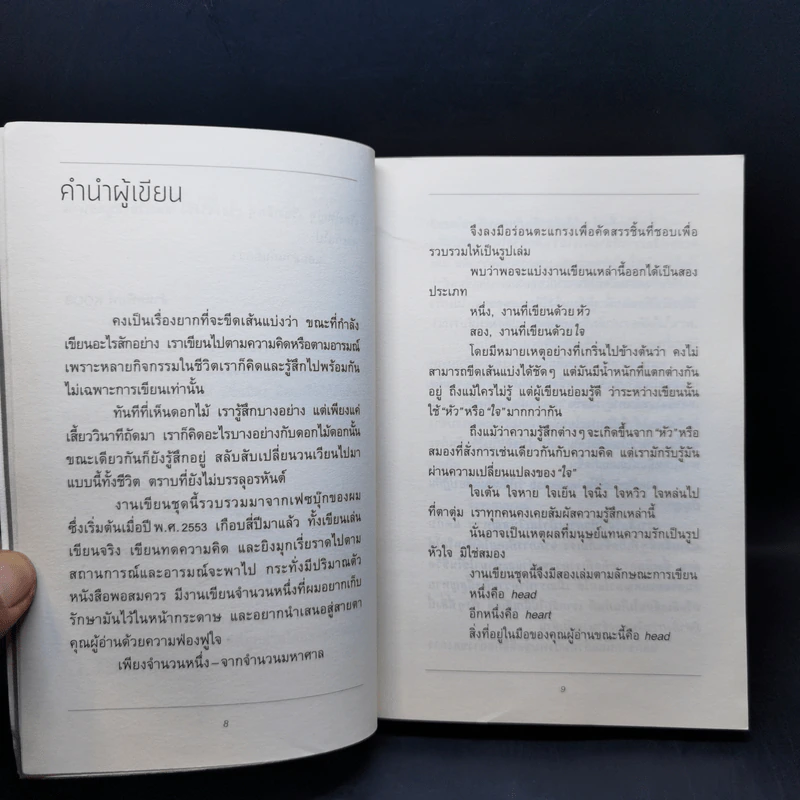 คำนำผู้เขียน
คงเป็นเรื่องยากที่จะขีดเส้นแบ่งว่า ขณะที่กำลัง
เขียนอะไรสักอย่าง เราเขียนไปตามความคิดหรือตามอารมณ์
เพราะหลายกิจกรรมในชีวิตเราก็คิดและรู้สึกไปพร้อมกัน
ไม่เฉพาะการเขียนเท่านั้น
ทันทีที่เห็นดอกไม้ เรารู้สึกบางอย่าง แต่เพียงแค่
เสี้ยววินาทีถัดมา เราก็คิดอะไรบางอย่างกับดอกไม้ดอกนั้น
ขณะเดียวกันก็ยังรู้สึกอยู่ สลับสับเปลี่ยนวนเวียนไปมา
แบบนี้ทั้งชีวิต ตราบที่ยังไม่บรรลุอรหันต์
งานเขียนชุดนี้รวบรวมมาจากเฟซบุ๊กของผม
ซึ่งเริ่มต้นเมื่อปี พ.ศ. 2553 เกือบสี่ปีมาแล้ว ทั้งเขียนเล่น
เขียนจริง เขียนทดความคิด และยิงมุกเรี่ยราดไปตาม
สถานการณ์และอารมณ์จะพาไป กระทั่งมีปริมาณตัว
หนังสือพอสมควร มีงานเขียนจำนวนหนึ่งที่ผมอยากเก็บ
รักษามันไว้ในหน้ากระดาษ และอยากนำเสนอสู่สายตา
คุณผู้อ่านด้วยความฟ่องฟูใจ
เพียงจำนวนหนึ่ง–จากจำนวนมหาศาล
8
จึงลงมือร่อนตะแกรงเพื่อคัดสรรชิ้นที่ชอบเพื่อ
รวบรวมให้เป็นรูปเล่ม
พบว่าพอจะแบ่งงานเขียนเหล่านี้ออกได้เป็นสอง
ประเภท
หนึ่ง, งานที่เขียนด้วย หัว
สอง, งานที่เขียนด้วย ใจ
โดยมีหมายเหตุอย่างที่เกริ่นไปข้างต้นว่า คงไม่
สามารถขีดเส้นแบ่งได้ชัดๆ แต่มันมีน้ำหนักที่แตกต่างกัน
อยู่ ถึงแม้ใครไม่รู้ แต่ผู้เขียนย่อมรู้ดี ว่าระหว่างเขียนนั้น
ใช้ “หัว” หรือ “ใจ” มากกว่ากัน
ถึงแม้ว่าความรู้สึกต่างๆ จะเกิดขึ้นจาก “หัว” หรือ
สมองที่สั่งการเช่นเดียวกันกับความคิด แต่เรามักรับรู้มัน
ผ่านความเปลี่ยนแปลงของ “ใจ”
ใจเต้น ใจหาย ใจเย็น ใจนิ่ง ใจหวิว ใจหล่นไป
ที่ตาตุ่ม เราทุกคนคงเคยสัมผัสความรู้สึกเหล่านี้
นั่นอาจเป็นเหตุผลที่มนุษย์แทนความรักเป็นรูป
หัวใจ มิใช่สมอง
งานเขียนชุดนี้จึงมีสองเล่มตามลักษณะการเขียน
หนึ่งคือ head
อีกหนึ่งคือ heart
สิ่งที่อยู่ในมือของคุณผู้อ่านขณะนี้คือ head
9